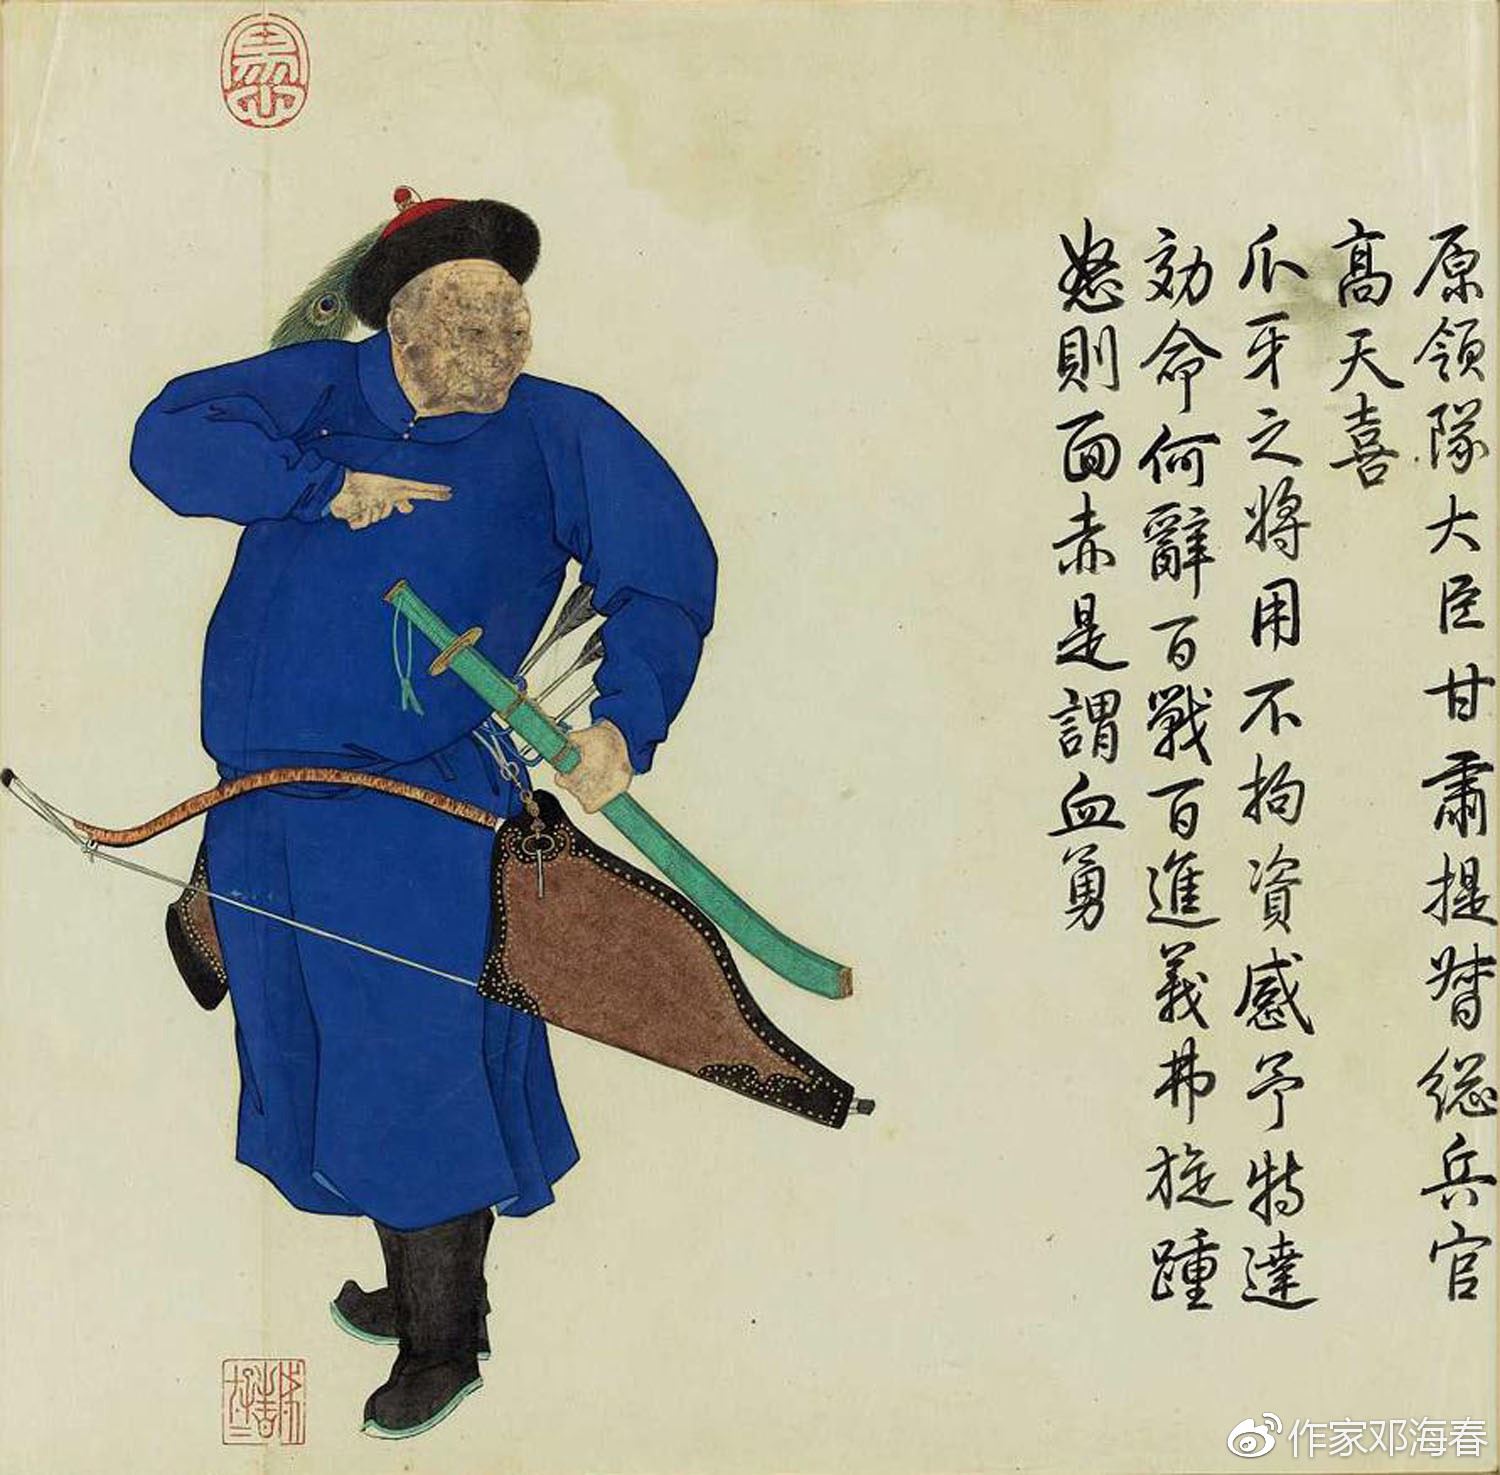 原領隊大臣甘肅提督総兵官
高天喜
爪牙之將用不拘資感予特達
効命何辭百戰百進義弗旋踵
怒則面赤是謂血勇
作家邓海春